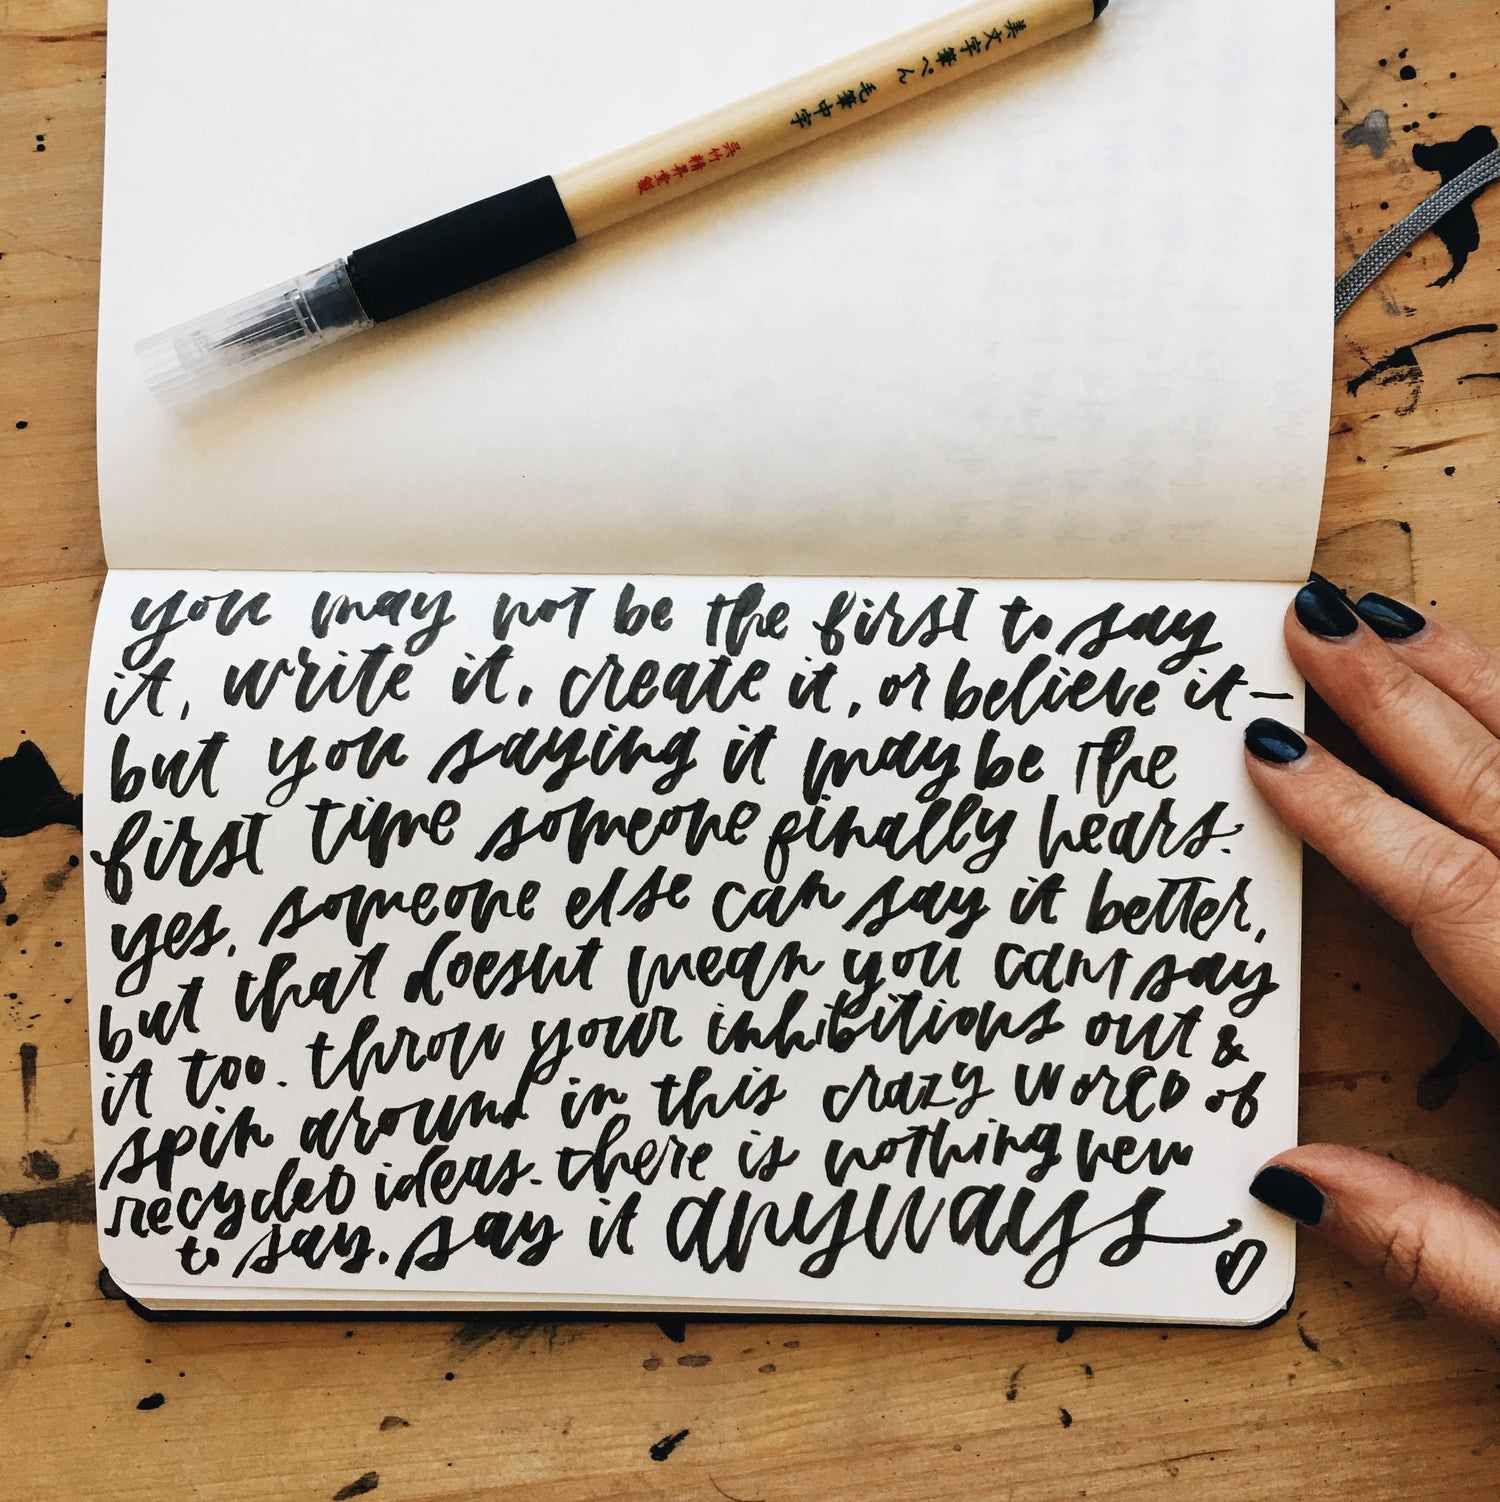 美文字筆ぺん 毛筆中字
呉竹精昇堂製
you may not be the first to say
it, write it, create it, or believe it —
but you saying it may be the
first time someone finally hears.
yes, someone else can say it better,
but that doesnt mean you cant say
it too. throw your inhibitions out &
spin around in this crazy world of
recycled ideas. there is nothing new
to say. say it anyways